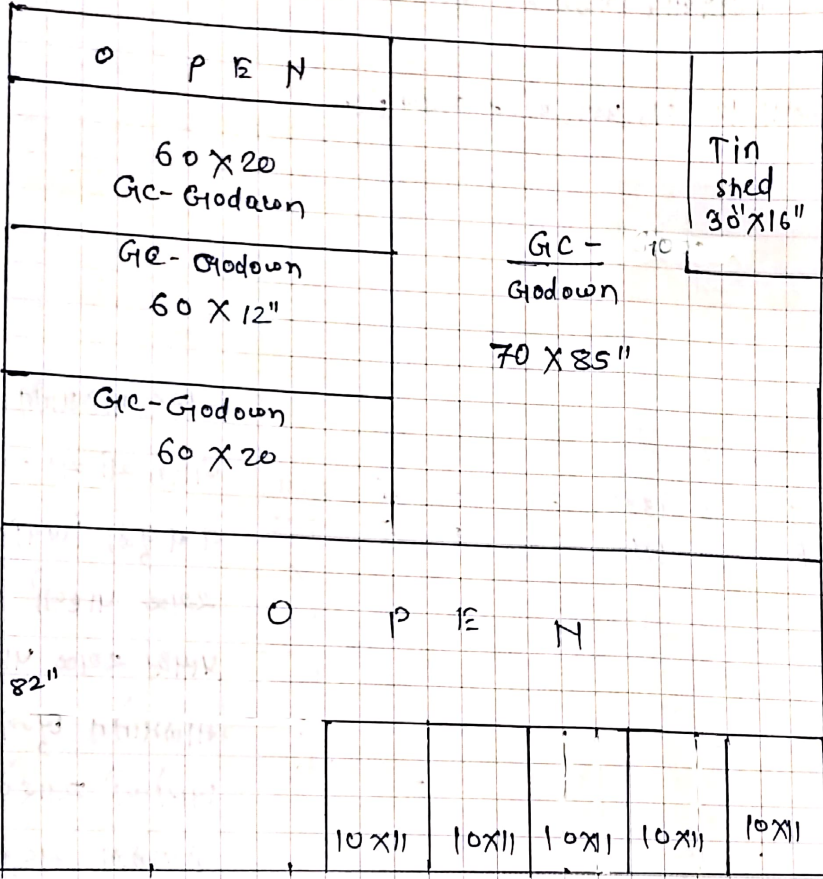 O P E N
60 X 20
GC-Godawn
GC-Godown
60 X 12"
GC-Godown
60 X 20
GC-
Godown
70 X 85"
Tin
shed
30"X16"
O P E N
82"
10X11
10X11
10X11
10X11
10X11